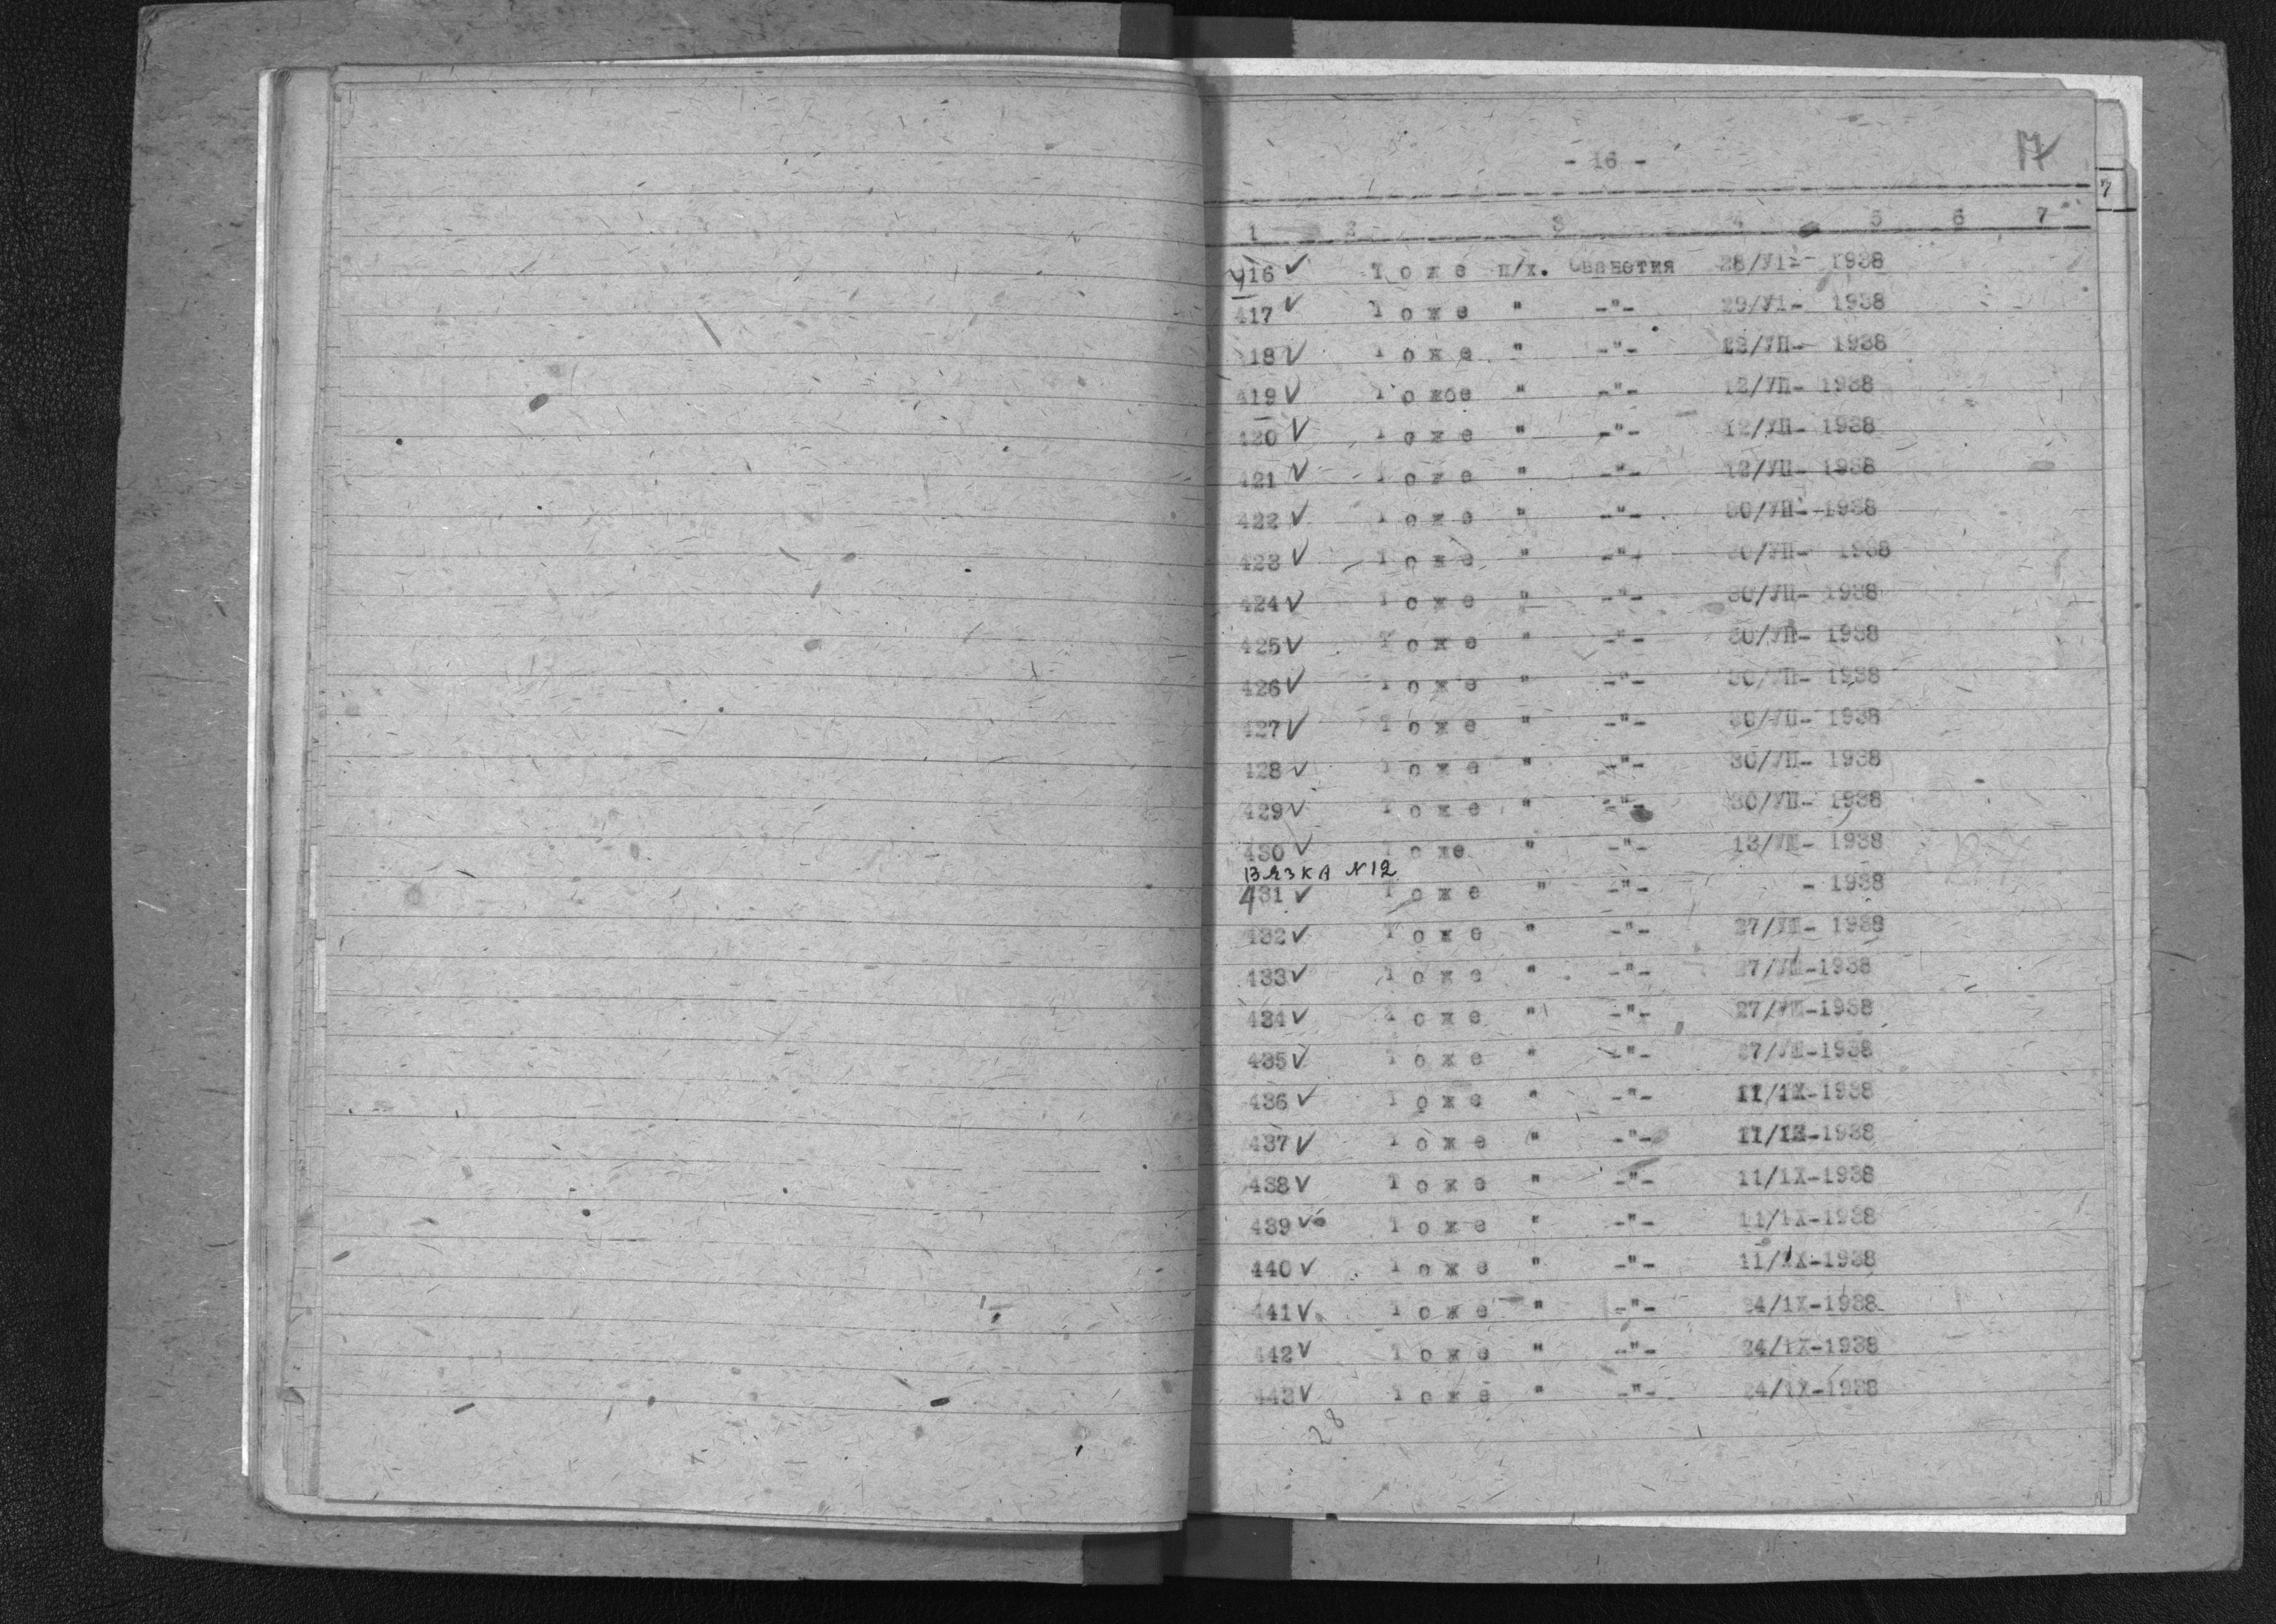 - 16 -
17
7
1 2 3 4 5 6 7
416 √ Т о ж е п/х. Сванетия 28/УІ- 1938
417 √ Т о ж е " -"- 29/УІ- 1938
418 √ Т о ж е " -"- 12/УІІ- 1938
419 √ Т о жое " -"- 12/УІІ- 1938
420 √ Т о ж е " -"- 12/УІІ- 1938
421 √ Т о ж е " -"- 12/УІІ- 1938
422 √ Т о ж е " -"- 30/УІІ- 1938
423 √ Т о ж е " -"- 30/УІІ- 1938
424 √ Т о ж е " -"- 30/УІІ- 1938
425 √ Т о ж е " -"- 30/УІІ- 1938
426 √ Т о ж е " -"- 30/УІІ- 1938
427 √ Т о ж е " -"- 30/УІІ- 1938
428 √ Т о ж е " -"- 30/УІІ- 1938
429 √ Т о ж е " -"- 30/УІІ- 1938
430 √ Т о же " -"- 13/УІІІ- 1938
ВЯЗКА №12
431 √ Т о ж е " -"- - 1938
432 √ Т о ж е " -"- 27/УІІІ- 1938
433 √ Т о ж е " -"- 27/УІІІ-1938
434 √ Т о ж е " -"- 27/УІІІ-1938
435 √ Т о ж е " -"- 27/УІІІ-1938
436 √ Т о ж е " -"- 11/1Х-1938
437 √ Т о ж е " -"- 11/1Х-1938
438 √ Т о ж е " -"- 11/1Х-1938
439 √ Т о ж е " -"- 11/1Х-1938
440 √ Т о ж е " -"- 11/1Х-1938
441 √ Т о ж е " -"- 24/1Х-1938
442 √ Т о ж е " -"- 24/1Х-1938
443 √ Т о ж е " -"- 24/1Х-1938
28